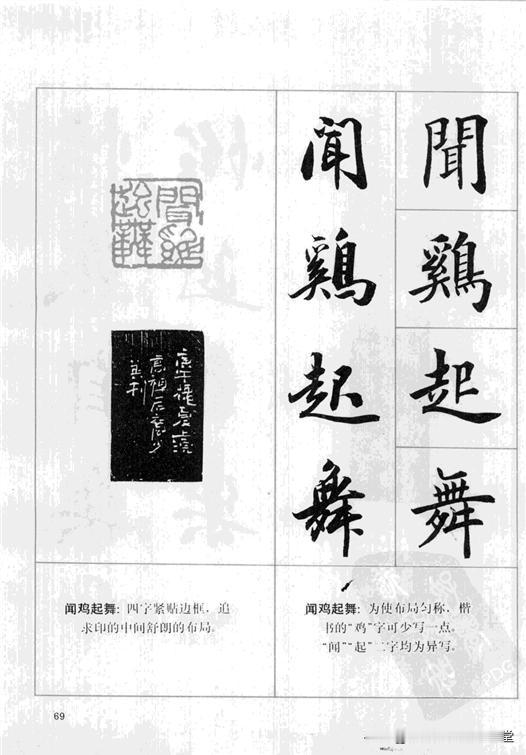 聞
鷄
起
舞
聞
鷄
起
舞
聞鷄
起舞
闻鸡起舞：四字紧贴边框，追
求印的中间舒朗的布局。
闻鸡起舞：为使布局匀称，楷
书的“鸡”字可少写一点。
“闻”“起”二字均为异写。
69
堂